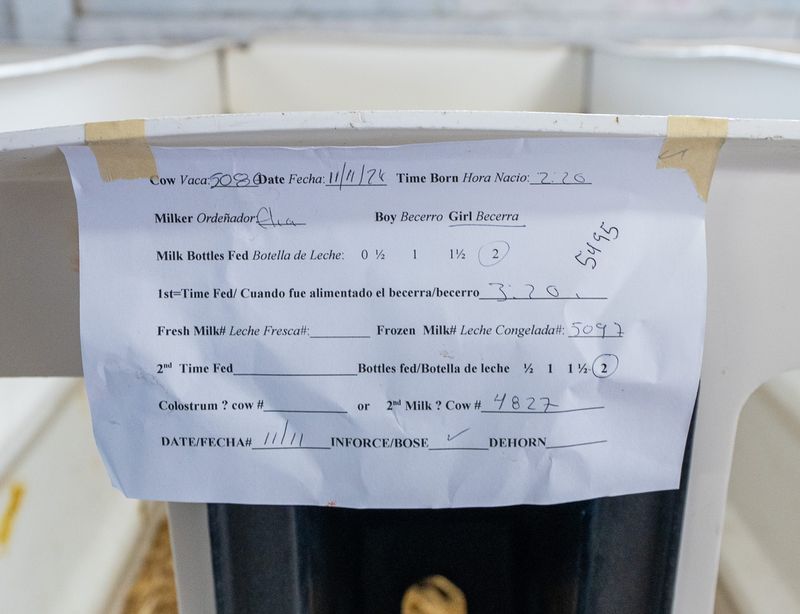 Cow Vaca: 5086 Date Fecha: 11/11/24 Time Born Hora Nacio: 2:20
Milker Ordeñador Boy Becerro Girl Becerra
5495
Milk Bottles Fed Botella de Leche: 0 ½ 1 1½ 2
1st=Time Fed/ Cuando fue alimentado el becerra/becerro 3:20.
Fresh Milk# Leche Fresca#: Frozen Milk# Leche Congelada#: 5097
2nd Time Fed Bottles fed/Botella de leche ½ 1 1 ½ 2
Colostrum ? cow # or 2nd Milk ? Cow # 4827
DATE/FECHA# 11/11 INFORCE/BOSE ✓ DEHORN